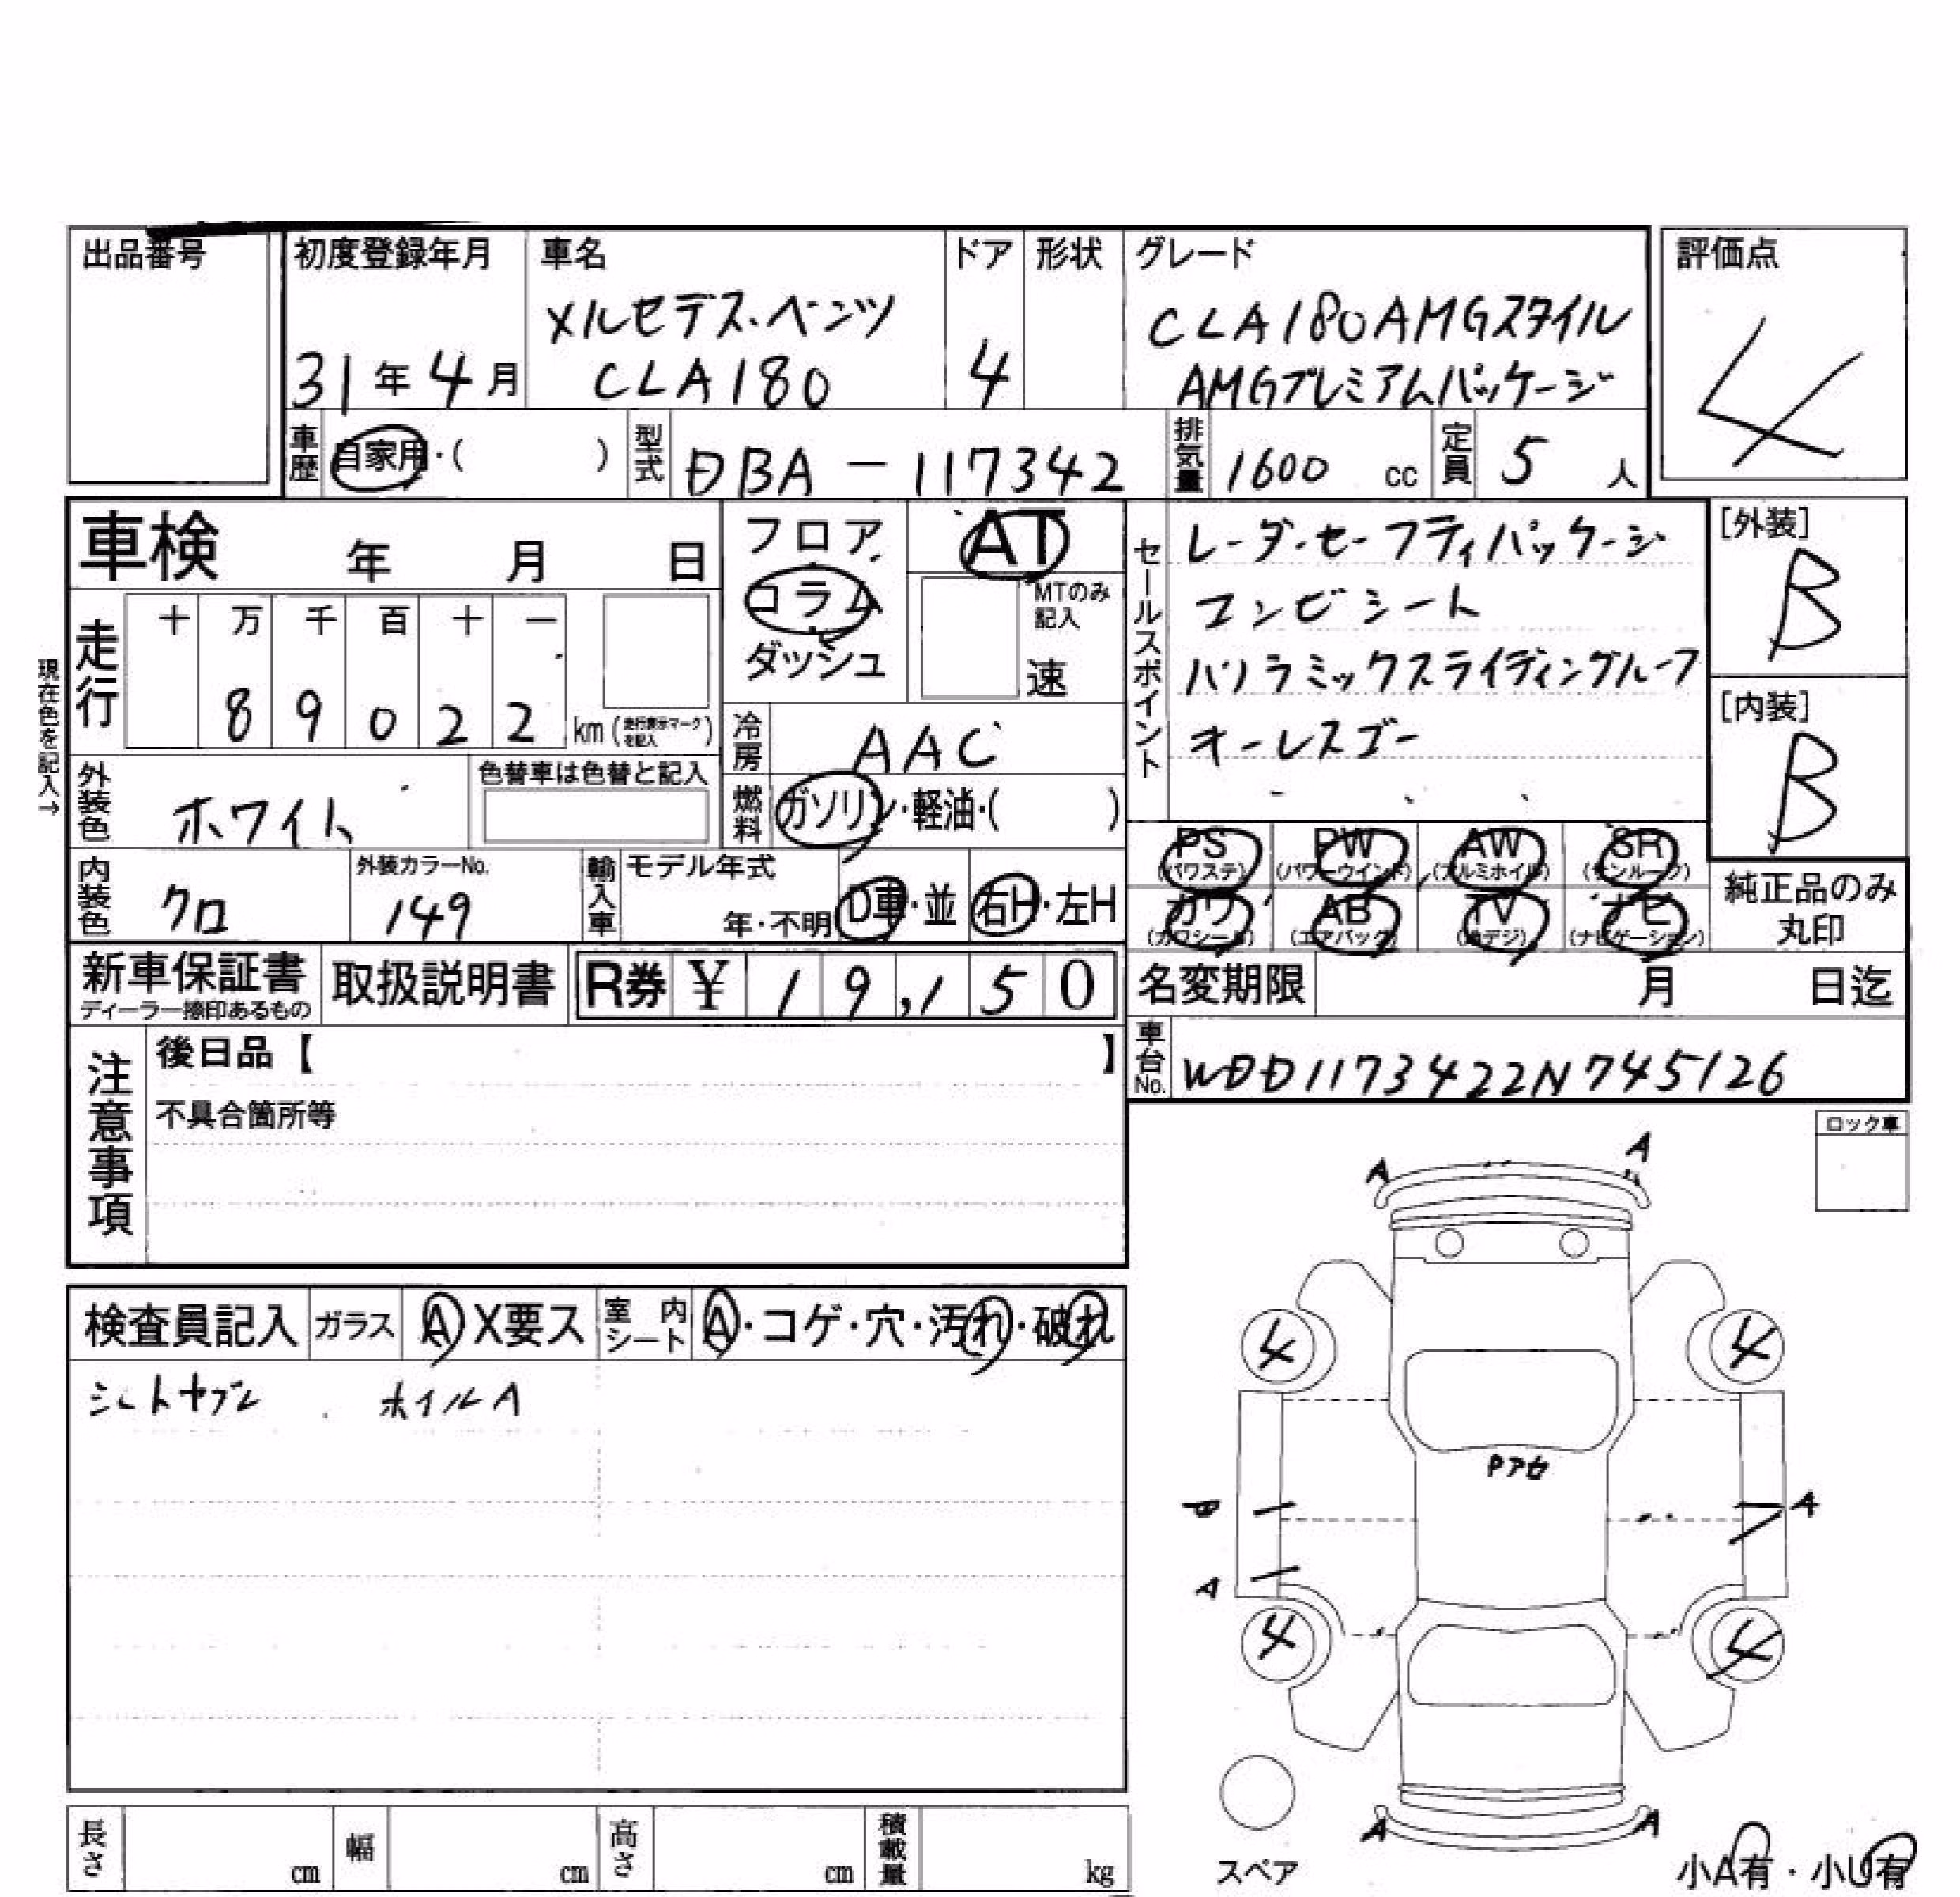 出品番号
初度登録年月
31年4月
車名
メルセデス・ベンツ
CLA180
ドア
4
形状
グレード
CLA180AMGスタイル
AMGプレミアムパッケージ
評価点
4
車歴
自家用・( )
型式
DBA-117342
排気量
1600 cc
定員
5 人
車検 年 月 日
走行
十 万 千 百 十 一
8 9 0 2 2 km (走行表示マークを記入)
現在色を記入→
外装色
ホワイト
色替車は色替と記入
内装色
クロ
外装カラーNo.
149
輸入車
モデル年式
年・不明
D車・並
右H・左H
フロア
コラム
ダッシュ
AT
MTのみ記入
速
冷房
AAC
燃料
ガソリン・軽油・( )
セールスポイント
レーダーセーフティパッケージ
コンビシート
パノラミックスライディングルーフ
オールスゴー
[外装]
B
[内装]
B
PS (パワステ)
PW (パワーウインド)
AW (アルミホイル)
SR (サンルーフ)
カワ (カワシート)
AB (エアバック)
TV (地デジ)
ナビ (ナビゲーション)
純正品のみ
丸印
新車保証書
ディーラー捺印あるもの
取扱説明書
R券 ¥ 19,150
名変期限 月 日迄
車台No.
WDD1173422N745126
注意事項
後日品【 】
不具合箇所等
ロック車
検査員記入
ガラス A X要ス
室内シート A・コゲ・穴・汚れ・破れ
ホイルA
A A
4 4
A
A
4 4
A A
スペア
小A有・小U有
長さ cm
幅 cm
高さ cm
積載量 kg